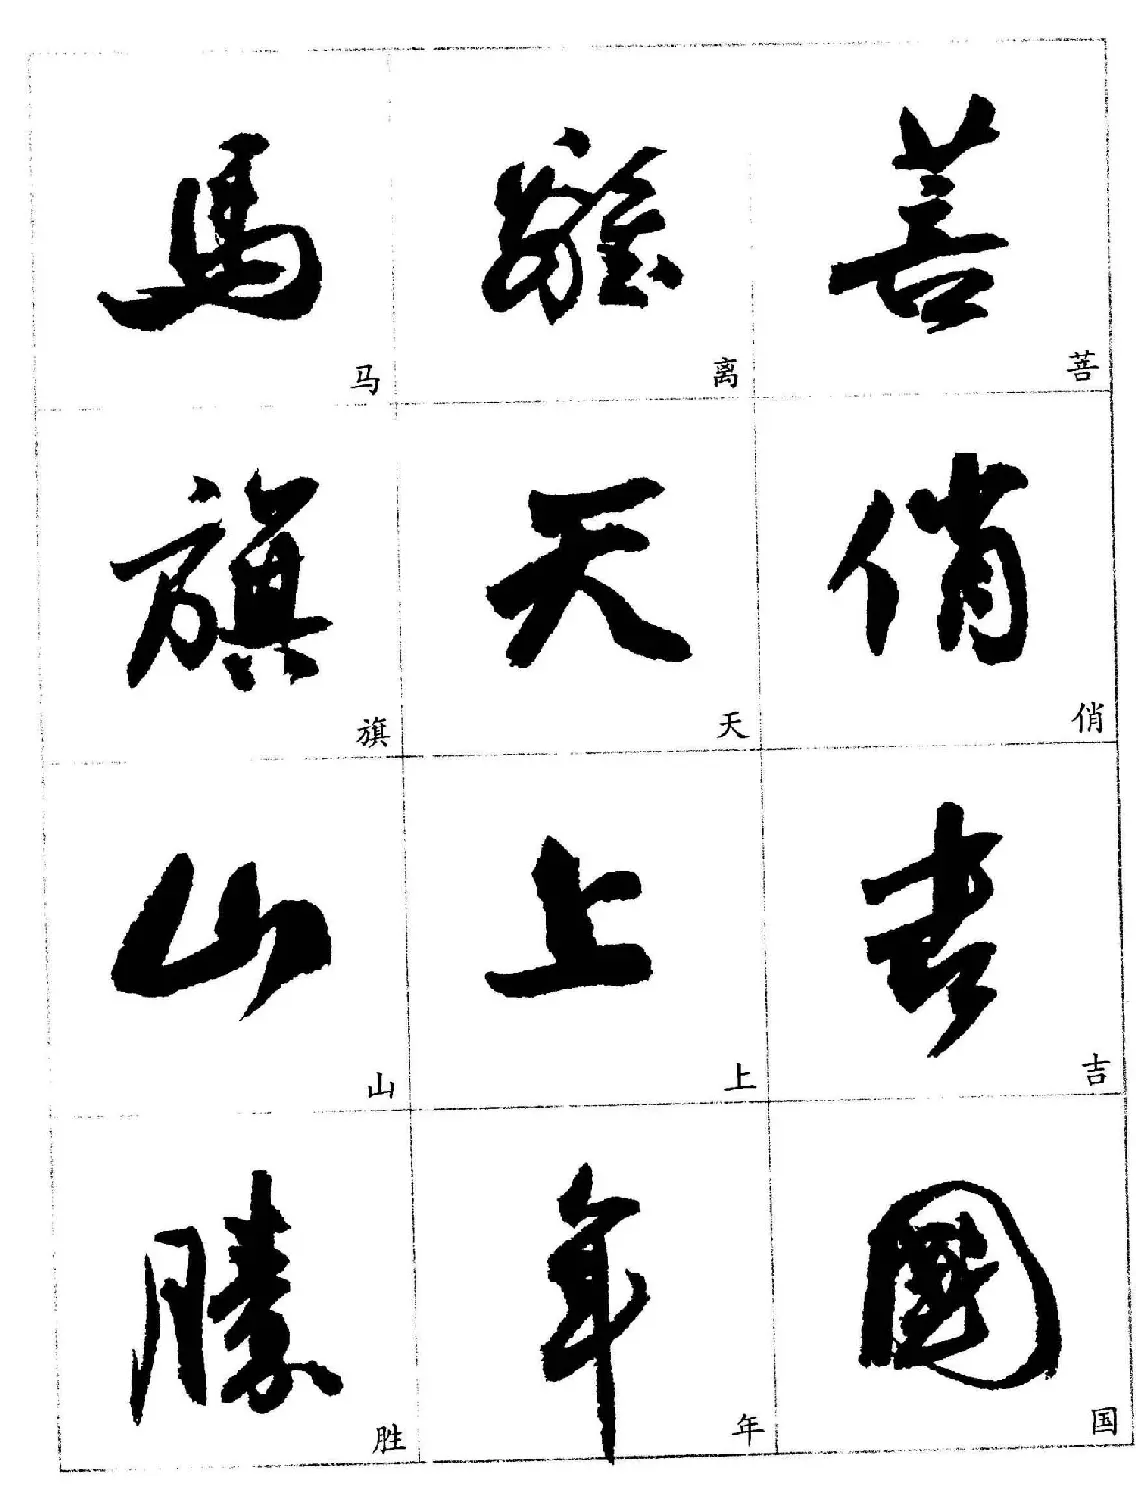 馬 離 菩
马 离 菩
旗 天 俏
旗 天 俏
山 上 吉
山 上 吉
勝 年 國
胜 年 国